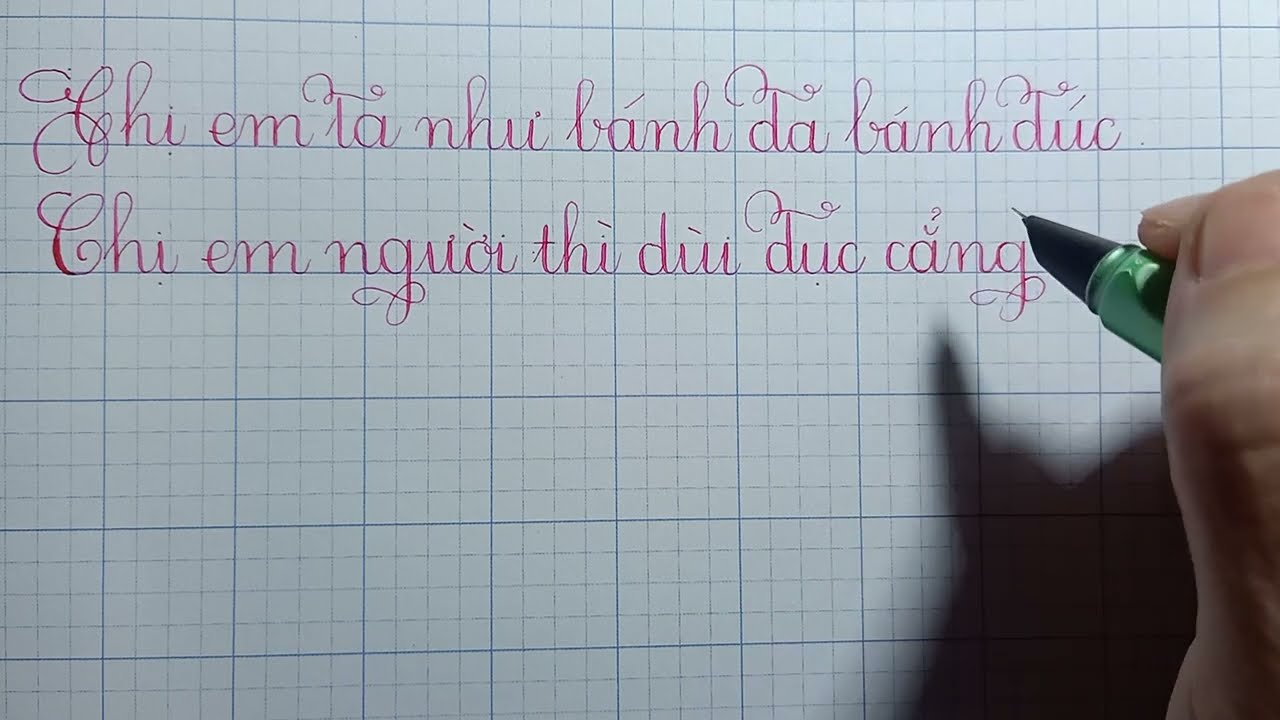 Chị em ta như bánh đa bánh đúc.
Chị em người thì dùi đục cẳng